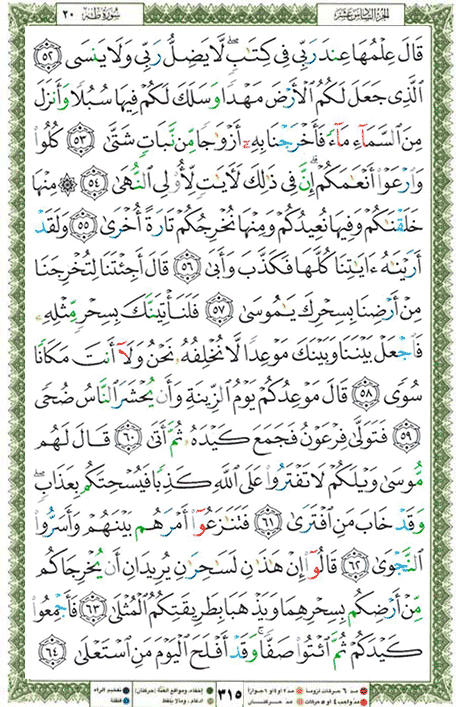 الجزء السادس عشر
سورة طه ٢٠
قَالَ عِلْمُهَا عِندَ رَبِّى فِى كِتَٰبٍۖ لَّا يَضِلُّ رَبِّى وَلَا يَنسَى ۝٥٢
ٱلَّذِى جَعَلَ لَكُمُ ٱلْأَرْضَ مَهْدًا وَسَلَكَ لَكُمْ فِيهَا سُبُلًا وَأَنزَلَ
مِنَ ٱلسَّمَآءِ مَآءً فَأَخْرَجْنَا بِهِۦٓ أَزْوَٰجًا مِّن نَّبَاتٍ شَتَّىٰ ۝٥٣ كُلُوا۟
وَٱرْعَوْا۟ أَنْعَٰمَكُمْۗ إِنَّ فِى ذَٰلِكَ لَءَايَٰتٍ لِّأُو۟لِى ٱلنُّهَىٰ ۝٥٤ ۞ مِنْهَا
خَلَقْنَٰكُمْ وَفِيهَا نُعِيدُكُمْ وَمِنْهَا نُخْرِجُكُمْ تَارَةً أُخْرَىٰ ۝٥٥ وَلَقَدْ
أَرَيْنَٰهُ ءَايَٰتِنَا كُلَّهَا فَكَذَّبَ وَأَبَىٰ ۝٥٦ قَالَ أَجِئْتَنَا لِتُخْرِجَنَا
مِنْ أَرْضِنَا بِسِحْرِكَ يَٰمُوسَىٰ ۝٥٧ فَلَنَأْتِيَنَّكَ بِسِحْرٍ مِّثْلِهِۦ
فَٱجْعَلْ بَيْنَنَا وَبَيْنَكَ مَوْعِدًا لَّا نُخْلِفُهُۥ نَحْنُ وَلَآ أَنتَ مَكَانًا
سُوًى ۝٥٨ قَالَ مَوْعِدُكُمْ يَوْمُ ٱلزِّينَةِ وَأَن يُحْشَرَ ٱلنَّاسُ ضُحًى
۝٥٩ فَتَوَلَّىٰ فِرْعَوْنُ فَجَمَعَ كَيْدَهُۥ ثُمَّ أَتَىٰ ۝٦٠ قَالَ لَهُم
مُّوسَىٰ وَيْلَكُمْ لَا تَفْتَرُوا۟ عَلَى ٱللَّهِ كَذِبًا فَيُسْحِتَكُم بِعَذَابٍۖ
وَقَدْ خَابَ مَنِ ٱفْتَرَىٰ ۝٦١ فَتَنَٰزَعُوٓا۟ أَمْرَهُم بَيْنَهُمْ وَأَسَرُّوا۟
ٱلنَّجْوَىٰ ۝٦٢ قَالُوٓا۟ إِنْ هَٰذَٰنِ لَسَٰحِرَٰنِ يُرِيدَانِ أَن يُخْرِجَاكُم
مِّنْ أَرْضِكُم بِسِحْرِهِمَا وَيَذْهَبَا بِطَرِيقَتِكُمُ ٱلْمُثْلَىٰ ۝٦٣ فَأَجْمِعُوا۟
كَيْدَكُمْ ثُمَّ ٱئْتُوا۟ صَفًّاۚ وَقَدْ أَفْلَحَ ٱلْيَوْمَ مَنِ ٱسْتَعْلَىٰ ۝٦٤
مد ٦ حركات لزوماً مد ٢ أو ٤ أو ٦ جوازاً ٣١٥ إخفاء، ومواقع الغنة (حركتان) تفخيم الراء
مد واجب ٤ أو ٥ حركات مد حركتان إدغام، وما لا يلفظ قلقلة